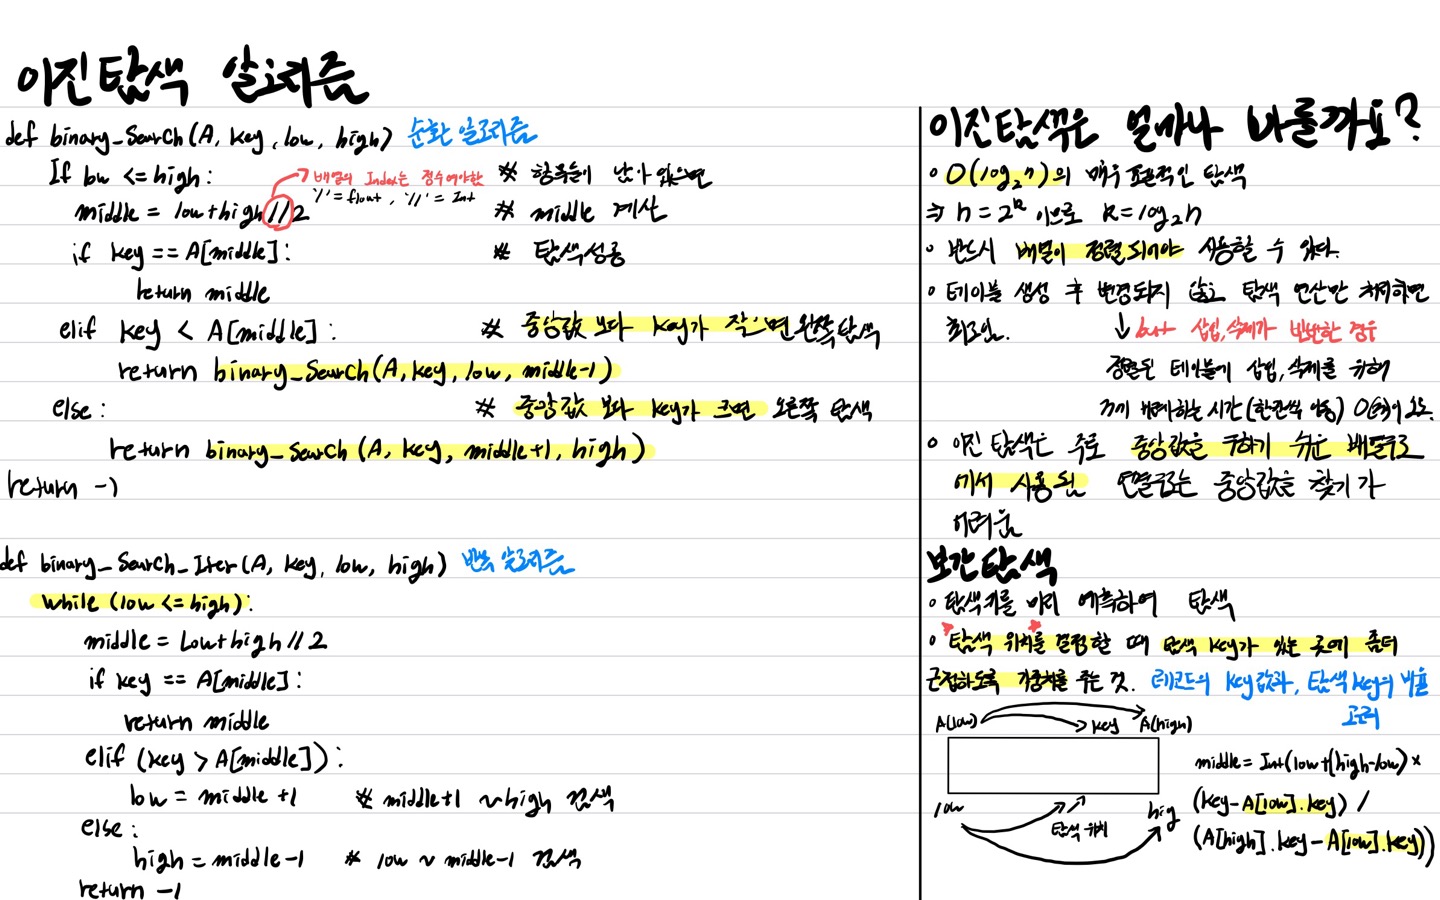 이진탐색 알고리즘
def binary_Search(A, key, low, high) 순환 알고리즘
If low <= high: # 항목들이 남아 있으면
배열의 Index는 정수여야함
'/' = float, '//' = Int
middle = low+high//2 # middle 계산
if key == A[middle]: # 탐색성공
return middle
elif key < A[middle]: # 중앙값 보다 key가 작으면 왼쪽탐색
return binary_Search(A, key, low, middle-1)
else: # 중앙값 보다 key가 크면 오른쪽 탐색
return binary_Search(A, key, middle+1, high)
return -1
def binary_Search_Iter(A, key, low, high) 반복 알고리즘
while (low <= high):
middle = low+high//2
if key == A[middle]:
return middle
elif (key > A[middle]):
low = middle +1 # middle+1 ~ high 검색
else:
high = middle-1 # low ~ middle-1 검색
return -1
이진탐색은 얼마나 빠를까요?
• O(log₂n)의 매우 효율적인 탐색
⇒ n = 2ᵏ 이므로 k = log₂n
• 반드시 배열이 정렬되어야 사용할 수 있다.
• 테이블 생성 후 변경되지 않고 탐색 연산만 처리하면
최고임. ↓ but 삽입,삭제가 빈번한 경우
정렬된 테이블에 삽입,삭제를 위해
하는 시간(한칸씩 이동) 소요.
• 이진 탐색은 주로 중앙값을 구하기 쉬운 배열구조
에서 사용됨 연결구조는 중앙값을 찾기가
어려움
보간탐색
• 탐색키를 미리 예측하여 탐색
• 탐색 위치를 결정할 때 탐색 key가 있는 곳에 좀더
근접하도록 가중치를 주는 것. 레코드의 key값과, 탐색key의 비율
고려
A(low) key A(high)
low 탐색 위치 hig
middle = Int(low+(high-low)×
(key-A[low].key) /
(A[high].key-A[low].key))